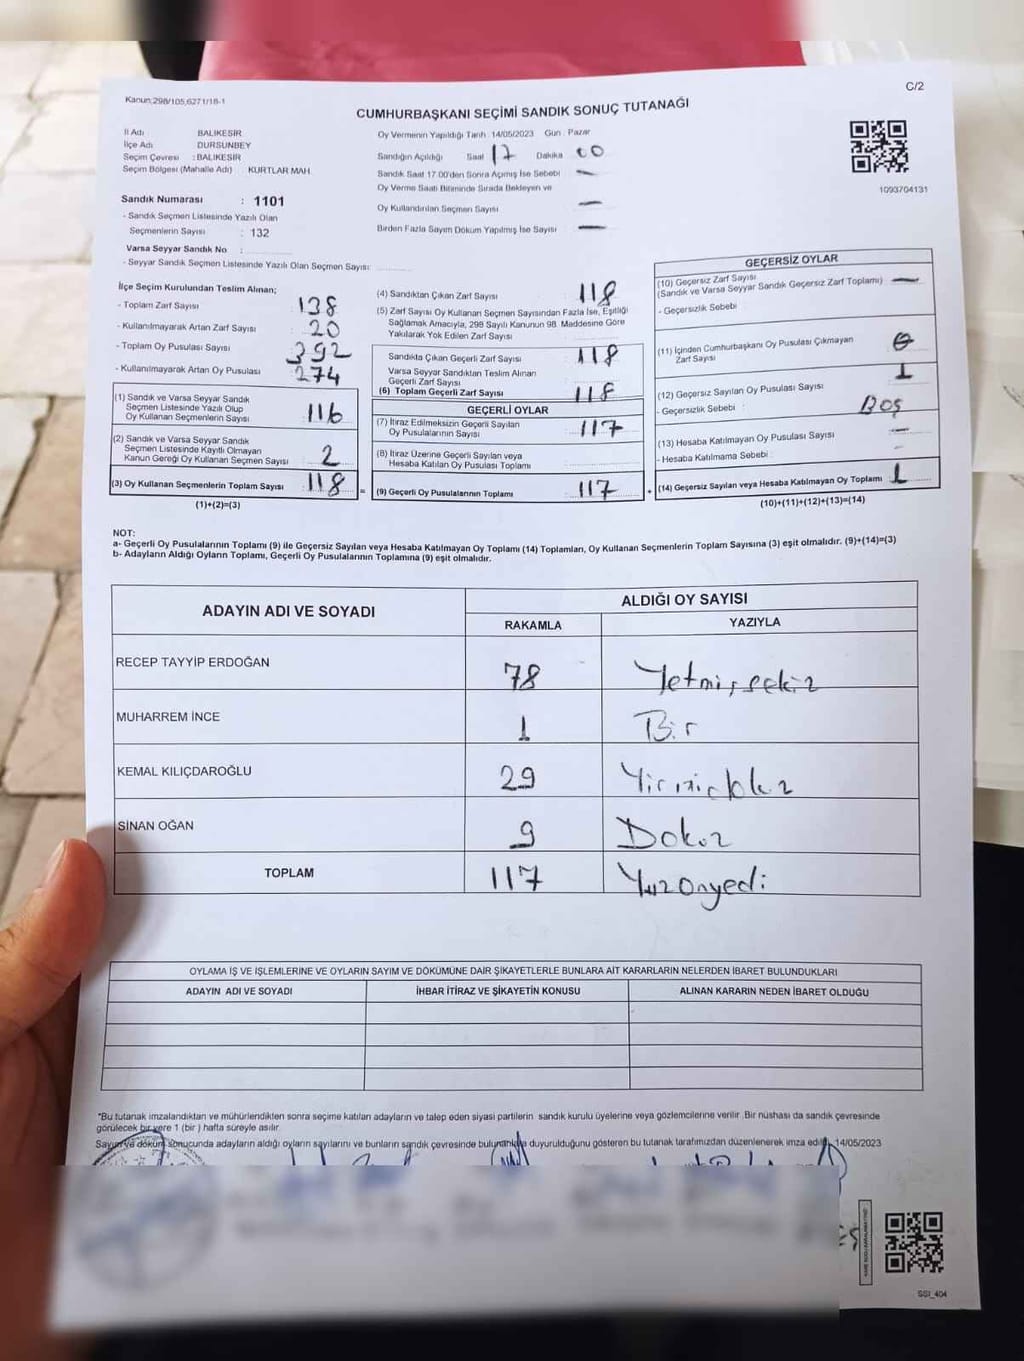 Kanun;298/105,6271/18-1
C/2
CUMHURBAŞKANI SEÇİMİ SANDIK SONUÇ TUTANAĞI
İl Adı BALIKESİR
İlçe Adı DURSUNBEY
Seçim Çevresi : BALIKESİR
Seçim Bölgesi (Mahalle Adı) KURTLAR MAH.
Sandık Numarası : 1101
- Sandık Seçmen Listesinde Yazılı Olan
Seçmenlerin Sayısı : 132
Varsa Seyyar Sandık No :
- Seyyar Sandık Seçmen Listesinde Yazılı Olan Seçmen Sayısı:
Oy Vermenin Yapıldığı Tarih :14/05/2023 Gün : Pazar
Sandığın Açıldığı Saat 17 Dakika 00
Sandık Saat 17.00'den Sonra Açımış İse Sebebi —
Oy Verme Saati Bitiminde Sırada Bekleyen ve
Oy Kullandırılan Seçmen Sayısı —
Birden Fazla Sayım Döküm Yapılmış İse Sayısı —
1093704131
İlçe Seçim Kurulundan Teslim Alınan;
- Toplam Zarf Sayısı : 138
- Kullanılmayarak Artan Zarf Sayısı : 20
- Toplam Oy Pusulası Sayısı : 392
- Kullanılmayarak Artan Oy Pusulası : 274
(1) Sandık ve Varsa Seyyar Sandık
Seçmen Listesinde Yazılı Olup
Oy Kullanan Seçmenlerin Sayısı : 116
(2) Sandık ve Varsa Seyyar Sandık
Seçmen Listesinde Kayıtlı Olmayan
Kanun Gereği Oy Kullanan Seçmen Sayısı : 2
(3) Oy Kullanan Seçmenlerin Toplam Sayısı : 118
(1)+(2)=(3)
(4) Sandıktan Çıkan Zarf Sayısı : 118
(5) Zarf Sayısı Oy Kullanan Seçmen Sayısından Fazla İse, Eşitliği
Sağlamak Amacıyla, 298 Sayılı Kanunun 98. Maddesine Göre
Yakılarak Yok Edilen Zarf Sayısı :
Sandıkta Çıkan Geçerli Zarf Sayısı : 118
Varsa Seyyar Sandıktan Teslim Alınan
Geçerli Zarf Sayısı :
(6) Toplam Geçerli Zarf Sayısı : 118
GEÇERLİ OYLAR
(7) İtiraz Edilmeksizin Geçerli Sayılan
Oy Pusulalarının Sayısı : 117
(8) İtiraz Üzerine Geçerli Sayılan veya
Hesaba Katılan Oy Pusulası Toplamı :
= (9) Geçerli Oy Pusulalarının Toplamı : 117
GEÇERSİZ OYLAR
(10) Geçersiz Zarf Sayısı
(Sandık ve Varsa Seyyar Sandık Geçersiz Zarf Toplamı) : —
- Geçersizlik Sebebi
(11) İçinden Cumhurbaşkanı Oy Pusulası Çıkmayan
Zarf Sayısı
(12) Geçersiz Sayılan Oy Pusulası Sayısı : 1
- Geçersizlik Sebebi : Boş
(13) Hesaba Katılmayan Oy Pusulası Sayısı : —
- Hesaba Katılmama Sebebi : —
+ (14) Geçersiz Sayılan veya Hesaba Katılmayan Oy Toplamı : 1
(10)+(11)+(12)+(13)=(14)
NOT:
a- Geçerli Oy Pusulalarının Toplamı (9) ile Geçersiz Sayılan veya Hesaba Katılmayan Oy Toplamı (14) Toplamları, Oy Kullanan Seçmenlerin Toplam Sayısına (3) eşit olmalıdır. (9)+(14)=(3)
b- Adayların Aldığı Oyların Toplamı, Geçerli Oy Pusulalarının Toplamına (9) eşit olmalıdır.
ADAYIN ADI VE SOYADI ALDIĞI OY SAYISI
RAKAMLA YAZIYLA
RECEP TAYYİP ERDOĞAN 78 Yetmişsekiz
MUHARREM İNCE 1 Bir
KEMAL KILIÇDAROĞLU 29 Yirmidokuz
SİNAN OĞAN 9 Dokuz
TOPLAM 117 Yüzonyedi
OYLAMA İŞ VE İŞLEMLERİNE VE OYLARIN SAYIM VE DÖKÜMÜNE DAİR ŞİKAYETLERLE BUNLARA AİT KARARLARIN NELERDEN İBARET BULUNDUKLARI
ADAYIN ADI VE SOYADI İHBAR İTİRAZ VE ŞİKAYETİN KONUSU ALINAN KARARIN NEDEN İBARET OLDUĞU
*Bu tutanak imzalandıktan ve mühürlendikten sonra seçime katılan adayların ve talep eden siyasi partilerin sandık kurulu üyelerine veya gözlemcilerine verilir .Bir nüshası da sandık çevresinde
görülecek bir yere 1 (bir ) hafta süreyle asılır.
Sayım ve döküm sonucunda adayların aldığı oyların sayılarını ve bunların sandık çevresinde bulunanlara duyurulduğunu gösteren bu tutanak tarafımızdan düzenlenerek imza edildi. 14/05/2023
SSI_404